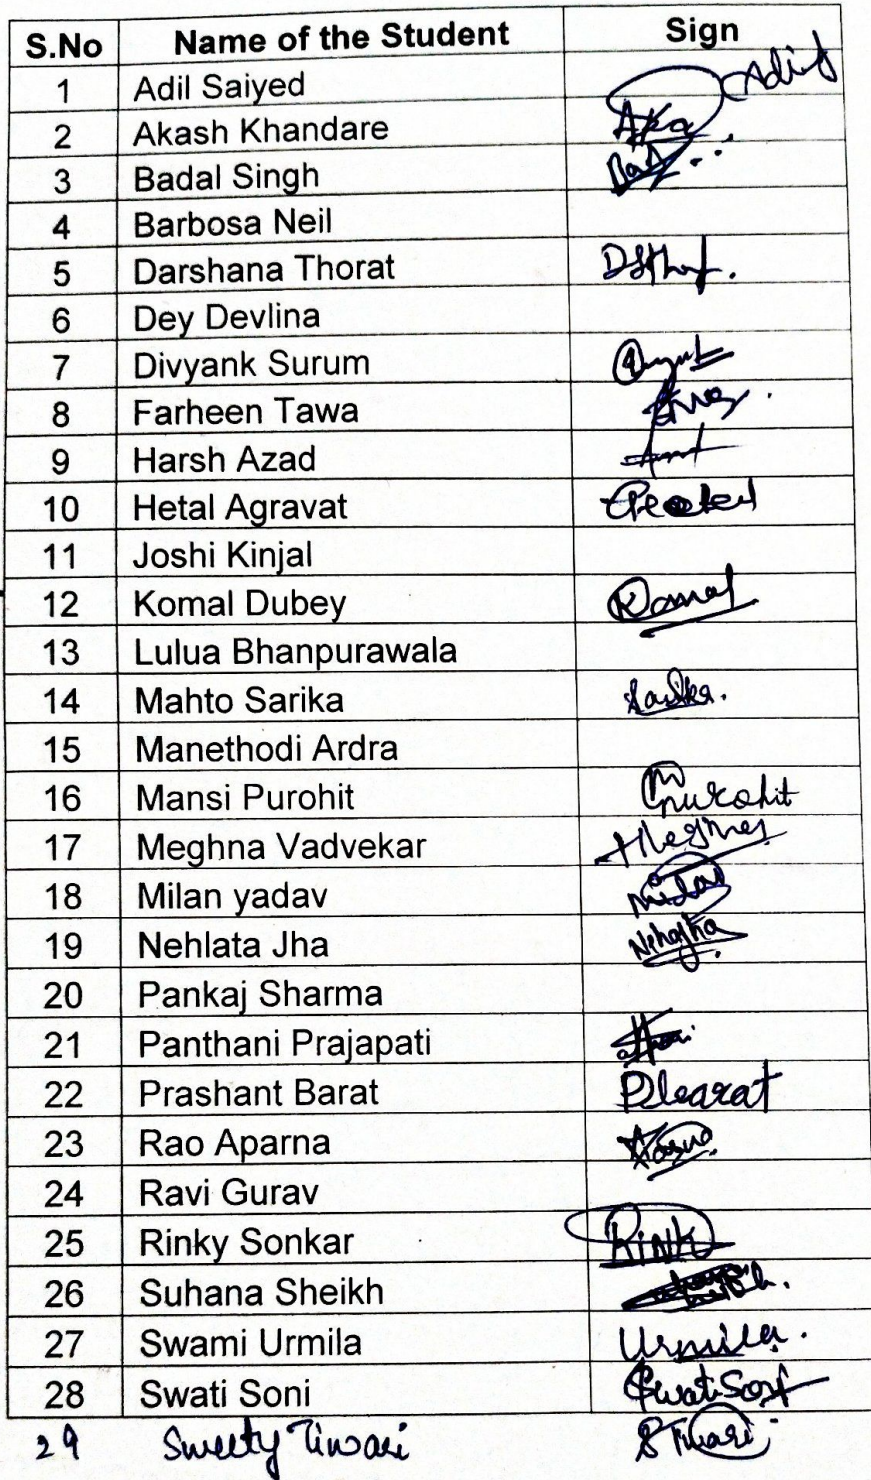 S.No Name of the Student Sign
1 Adil Saiyed Adil
2 Akash Khandare
3 Badal Singh
4 Barbosa Neil
5 Darshana Thorat
6 Dey Devlina
7 Divyank Surum
8 Farheen Tawa
9 Harsh Azad
10 Hetal Agravat
11 Joshi Kinjal
12 Komal Dubey Komal
13 Lulua Bhanpurawala
14 Mahto Sarika Sarika.
15 Manethodi Ardra
16 Mansi Purohit MPurohit
17 Meghna Vadvekar
18 Milan yadav Milan
19 Nehlata Jha
20 Pankaj Sharma
21 Panthani Prajapati
22 Prashant Barat PBarat
23 Rao Aparna
24 Ravi Gurav
25 Rinky Sonkar
26 Suhana Sheikh
27 Swami Urmila Urmila.
28 Swati Soni Swati Soni
29 Sweety Tiwari STiwari